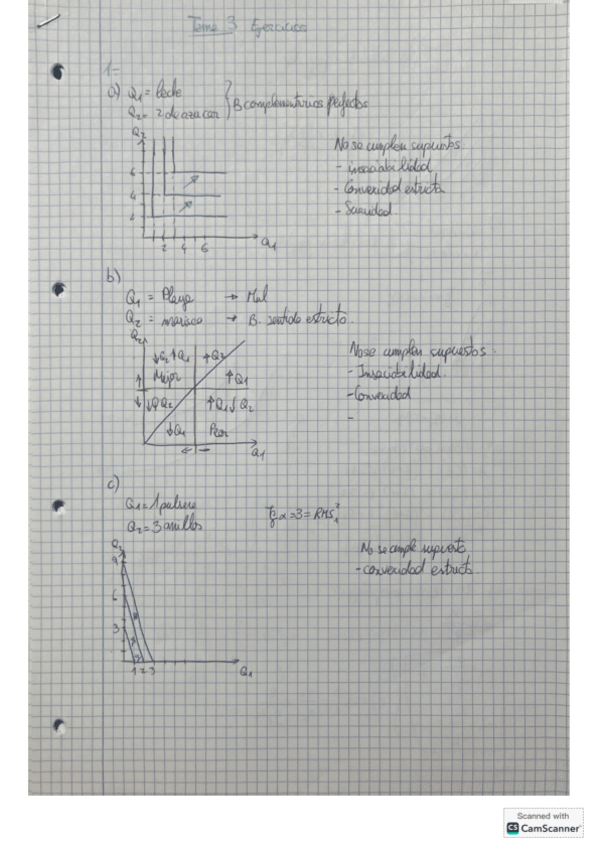 Tema 3 Ejercicios
1-
a) Q₁ = leche
Q₂ = 2 de azucar
B complementarios perfectos
No se cumplen supuestos
- insaciabilidad
- Convexidad estricta
- Suavidad
Q₂
6
4
2
2 4 6
Q₁
b)
Q₁ = Playa → Mal
Q₂ = marisco → B. sentido estricto.
Q₂
↓Q₂ ↑Q₁
↑Q₂
Mejor
↑Q₁
↑Q₁ ↓Q₂
↓Q₁
Peor
Q₁
No se cumplen supuestos
- Insaciabilidad.
- Convexidad
-
c)
Q₁ = 1 pulsera
Q₂ = 3 anillos
tg α = 3 = RMS₁²
No se cumple supuesto
- convexidad estricta
Q₂
9
6
3
1 2 3
Q₁
Scanned with
CS CamScanner